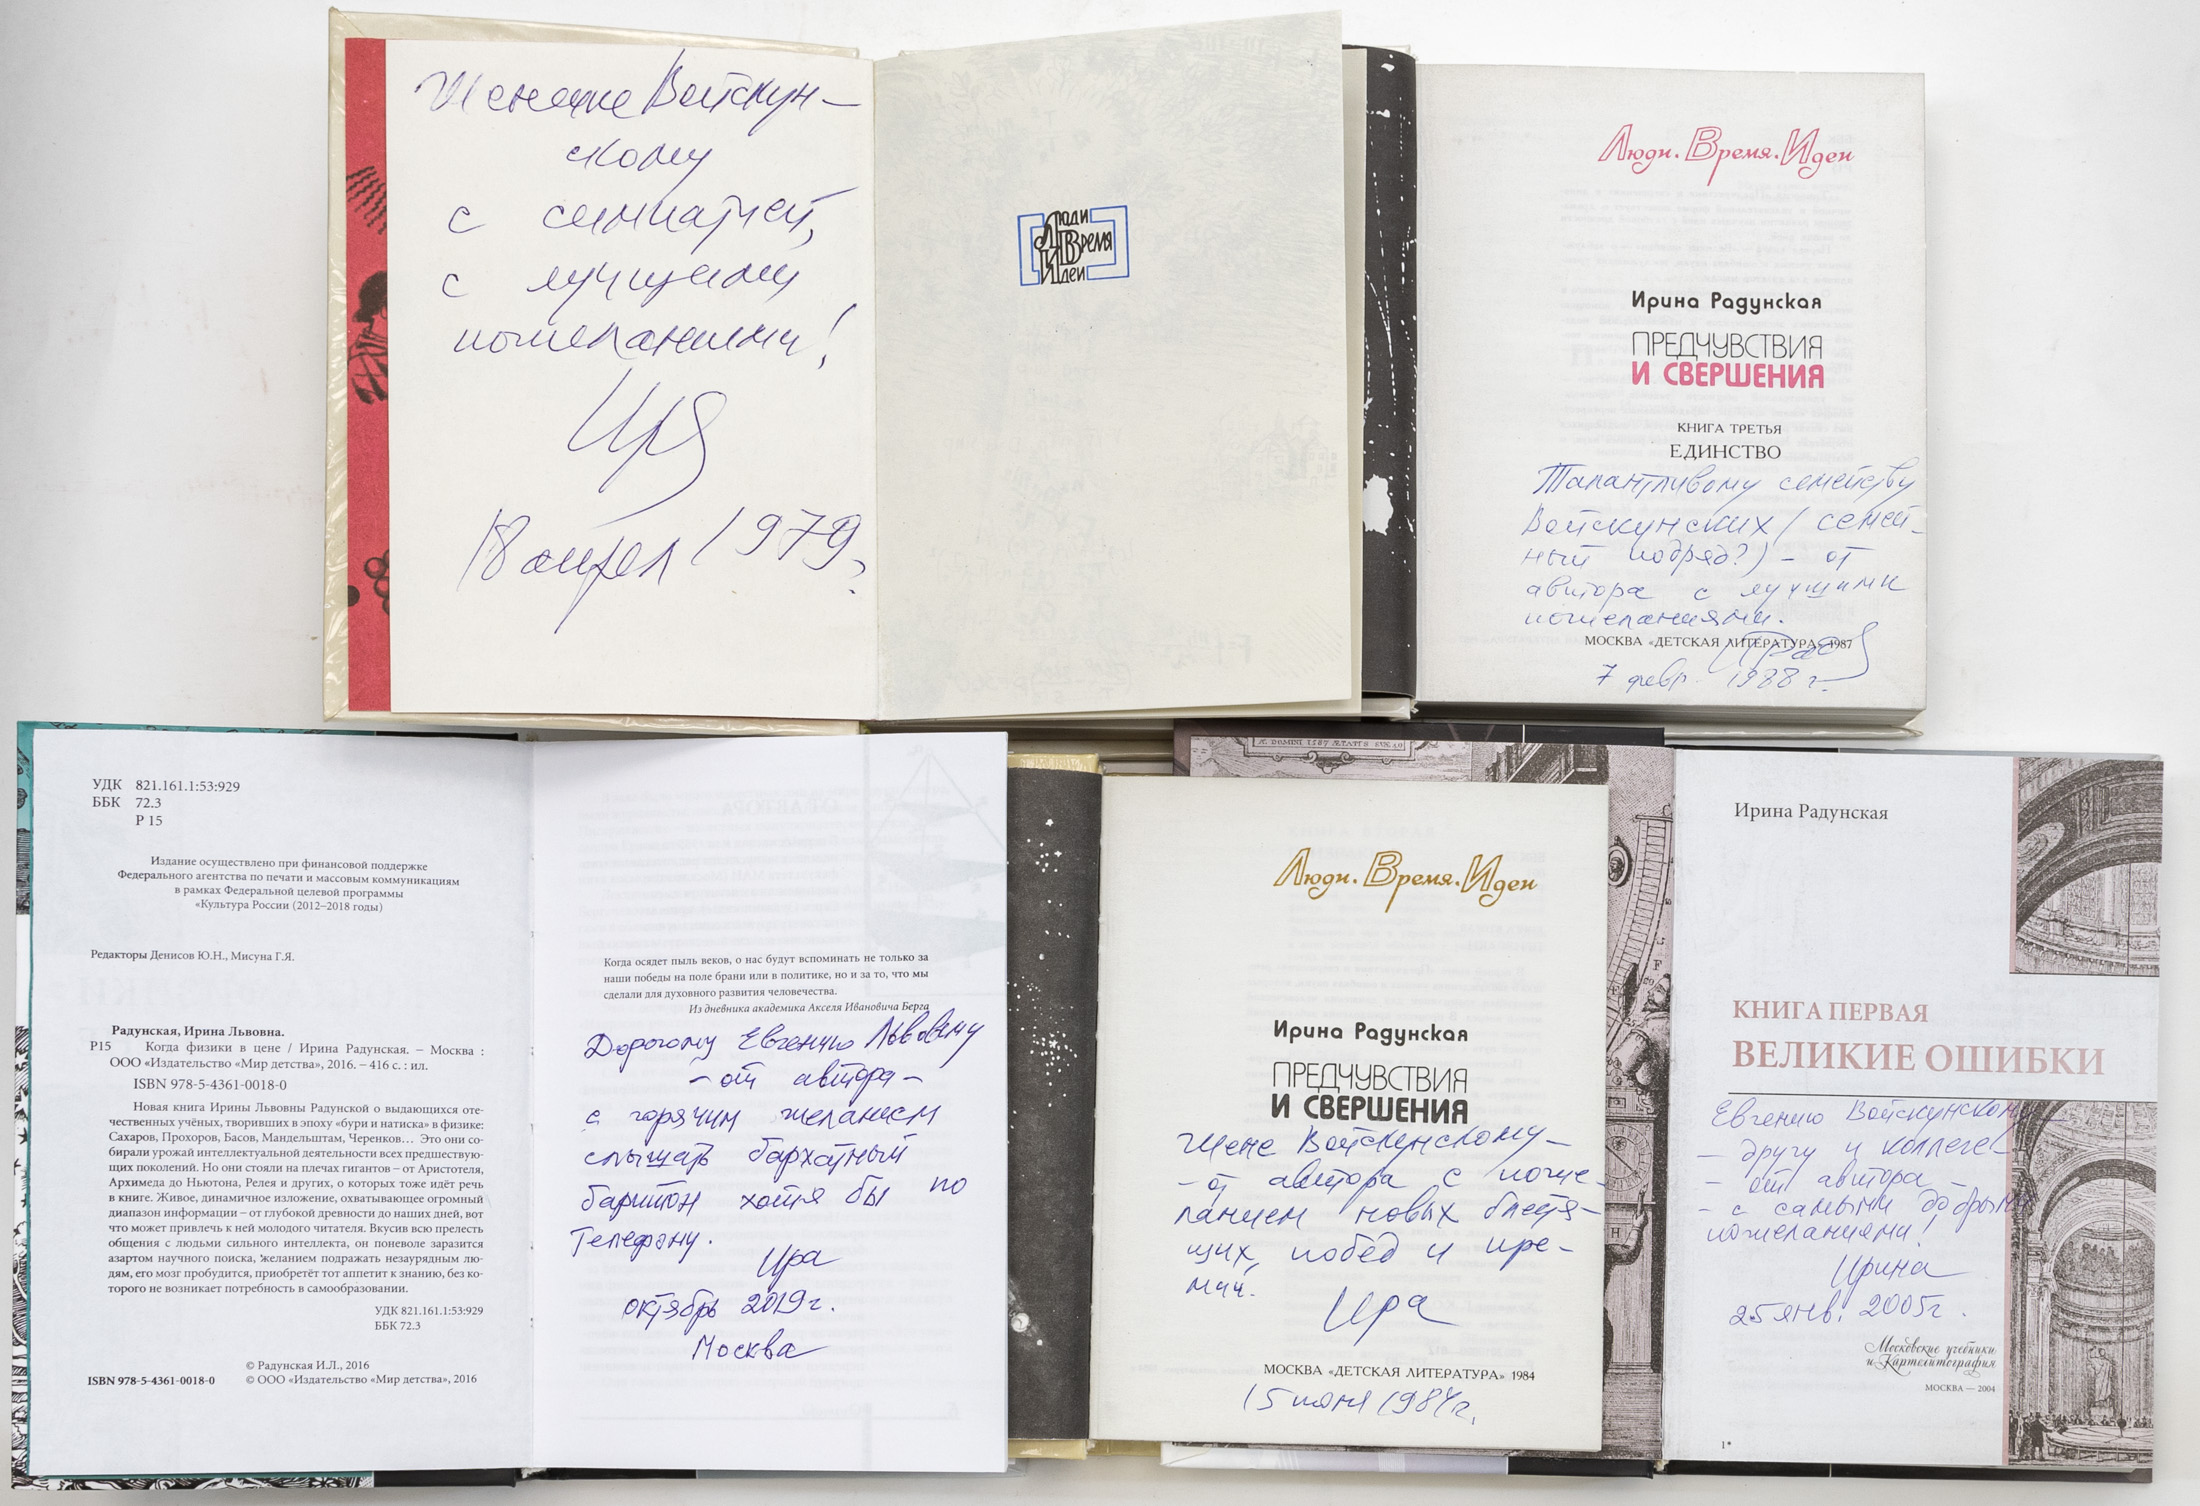 Женечке Войскун-
скому
с симпатией,
с лучшими
пожеланиями!
Ира
18 апрел 1979г.
Люди
Время
Идеи
Люди. Время. Идеи
Ирина Радунская
ПРЕДЧУВСТВИЯ
И СВЕРШЕНИЯ
КНИГА ТРЕТЬЯ
ЕДИНСТВО
Талантливому семейству
Войскунских (семей-
ный подряд?) – от
автора с лучшими
пожеланиями.
МОСКВА «ДЕТСКАЯ ЛИТЕРАТУРА» 1987
7 февр. 1988 г.
УДК 821.161.1:53:929
ББК 72.3
Р 15
Издание осуществлено при финансовой поддержке
Федерального агентства по печати и массовым коммуникациям
в рамках Федеральной целевой программы
«Культура России (2012–2018 годы)
Редакторы Денисов Ю.Н., Мисуна Г.Я.
Радунская, Ирина Львовна.
Р15 Когда физики в цене / Ирина Радунская. – Москва :
ООО «Издательство «Мир детства», 2016. – 416 с. : ил.
ISBN 978-5-4361-0018-0
Новая книга Ирины Львовны Радунской о выдающихся оте-
чественных учёных, творивших в эпоху «бури и натиска» в физике:
Сахаров, Прохоров, Басов, Мандельштам, Черенков… Это они со-
бирали урожай интеллектуальной деятельности всех предшествую-
щих поколений. Но они стояли на плечах гигантов – от Аристотеля,
Архимеда до Ньютона, Релея и других, о которых тоже идёт речь
в книге. Живое, динамичное изложение, охватывающее огромный
диапазон информации – от глубокой древности до наших дней, вот
что может привлечь к ней молодого читателя. Вкусив всю прелесть
общения с людьми сильного интеллекта, он поневоле заразится
азартом научного поиска, желанием подражать незаурядным лю-
дям, его мозг пробудится, приобретёт тот аппетит к знанию, без ко-
торого не возникает потребность в самообразовании.
УДК 821.161.1:53:929
ББК 72.3
© Радунская И.Л., 2016
ISBN 978-5-4361-0018-0 © ООО «Издательство «Мир детства», 2016
Когда осядет пыль веков, о нас будут вспоминать не только за
наши победы на поле брани или в политике, но и за то, что мы
сделали для духовного развития человечества.
Из дневника академика Акселя Ивановича Берга
Дорогому Евгению Львовичу
– от автора –
с горячим желанием
слышать бархатный
баритон хотя бы по
телефону.
Ира
октябрь 2019г.
Москва
Люди. Время. Идеи
Ирина Радунская
ПРЕДЧУВСТВИЯ
И СВЕРШЕНИЯ
Жене Войскунскому –
– от автора с поже-
ланием новых блестя-
щих побед и пре-
мий.
Ира
МОСКВА «ДЕТСКАЯ ЛИТЕРАТУРА» 1984
15 июня 1984г.
A. DOMINI 1587 ÆTATIS SVÆ 40
Ирина Радунская
КНИГА ПЕРВАЯ
ВЕЛИКИЕ ОШИБКИ
Евгению Войскунскому –
– другу и коллеге –
– от автора –
– с самыми добрыми
пожеланиями!
Ирина
25 янв. 2005г.
Московские учебники
и Картолитография
МОСКВА — 2004
1*